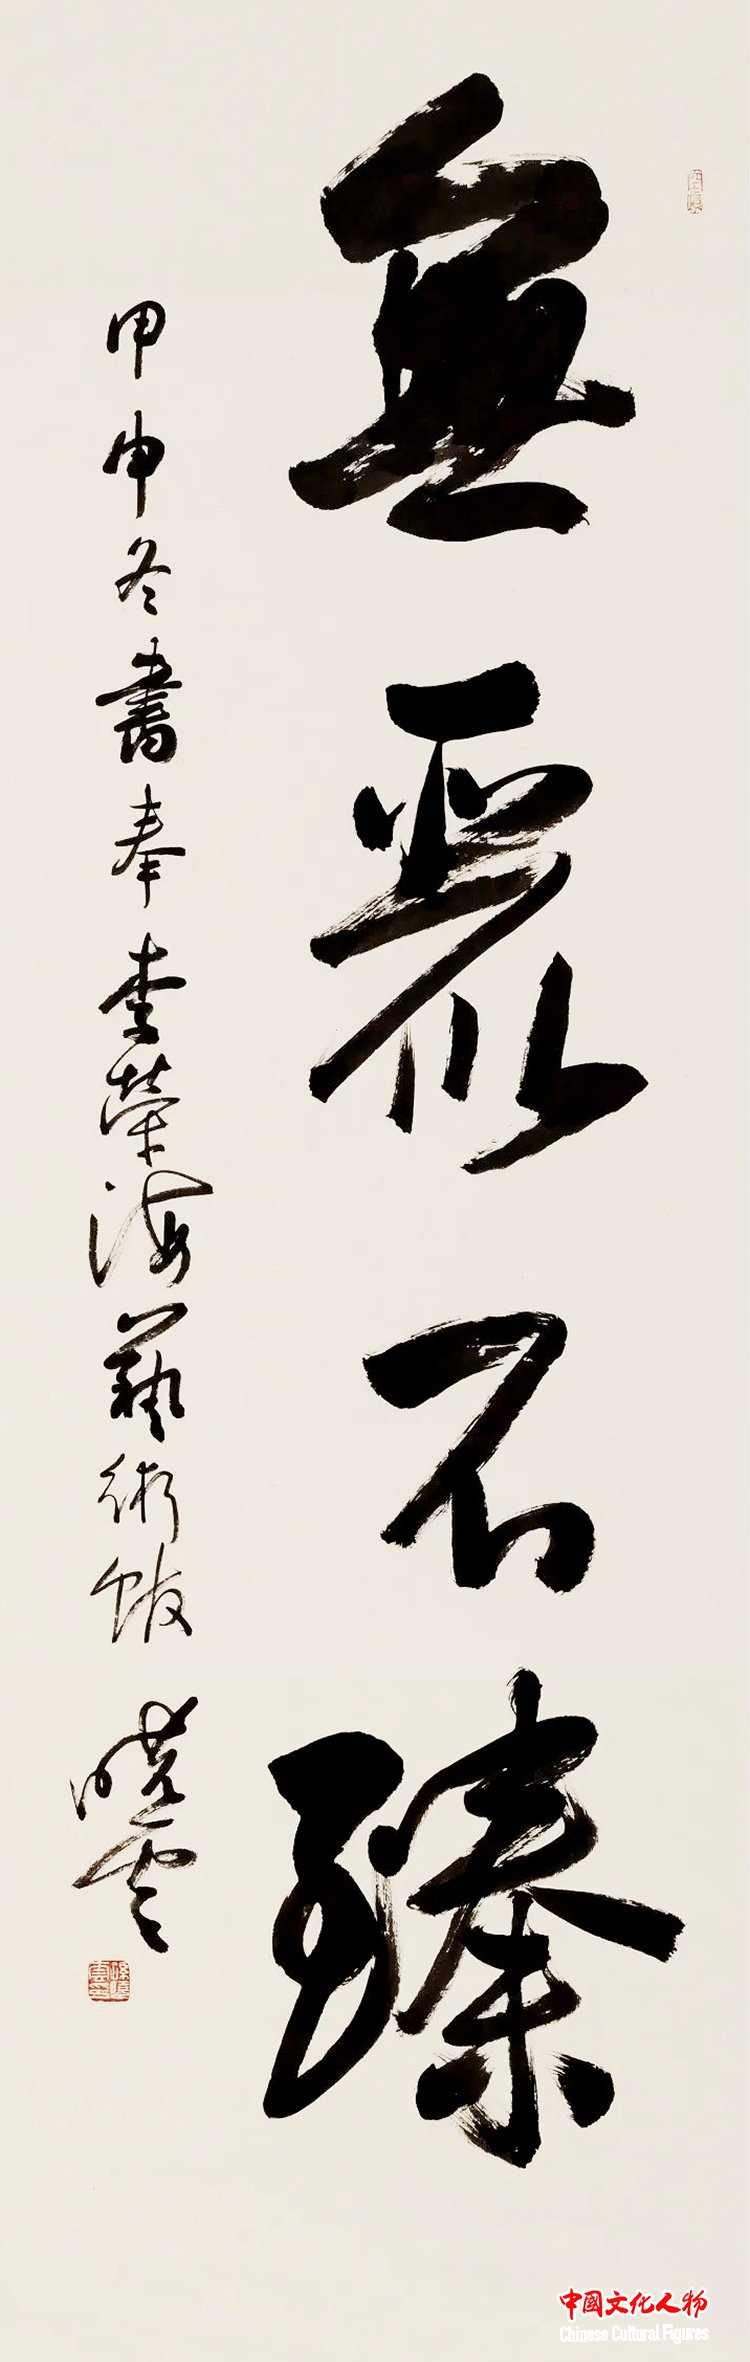 無惡不臻
甲申冬書奉李榮海藝術館
曉雲
中國文化人物
Chinese Cultural Figures